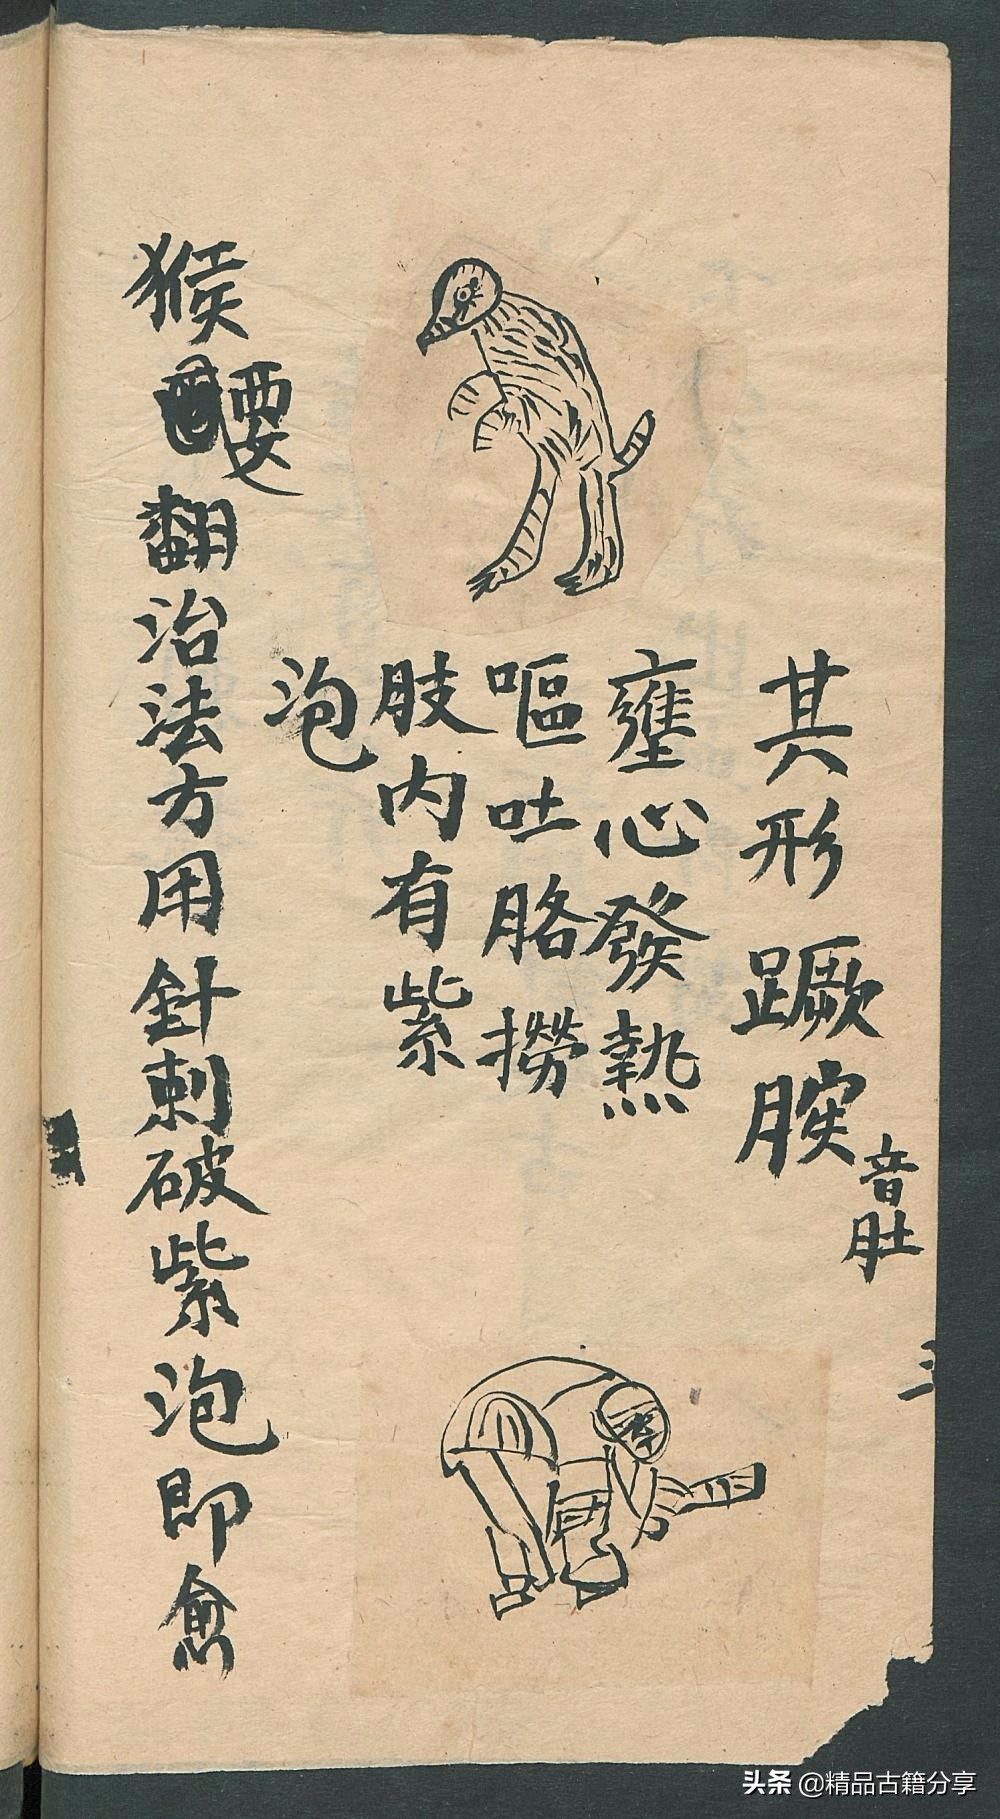 其形蹶腚
音肚
壅心發熱
嘔吐胳撈
肢内有紫
泡
猴耍翻治法方用針刺破紫泡即愈
头条 @精品古籍分享